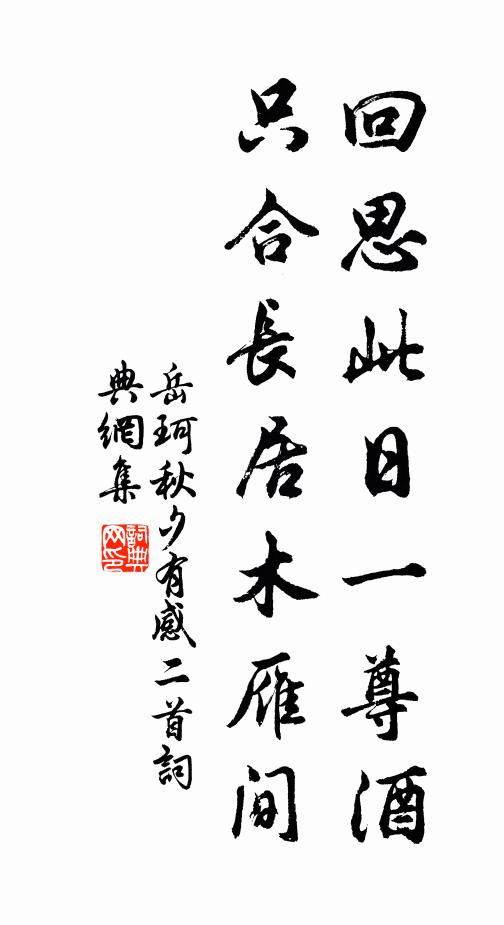 回思此日一尊酒
只合長居木雁间
岳珂秋夕有感二首詞
典網集
詞典
网印